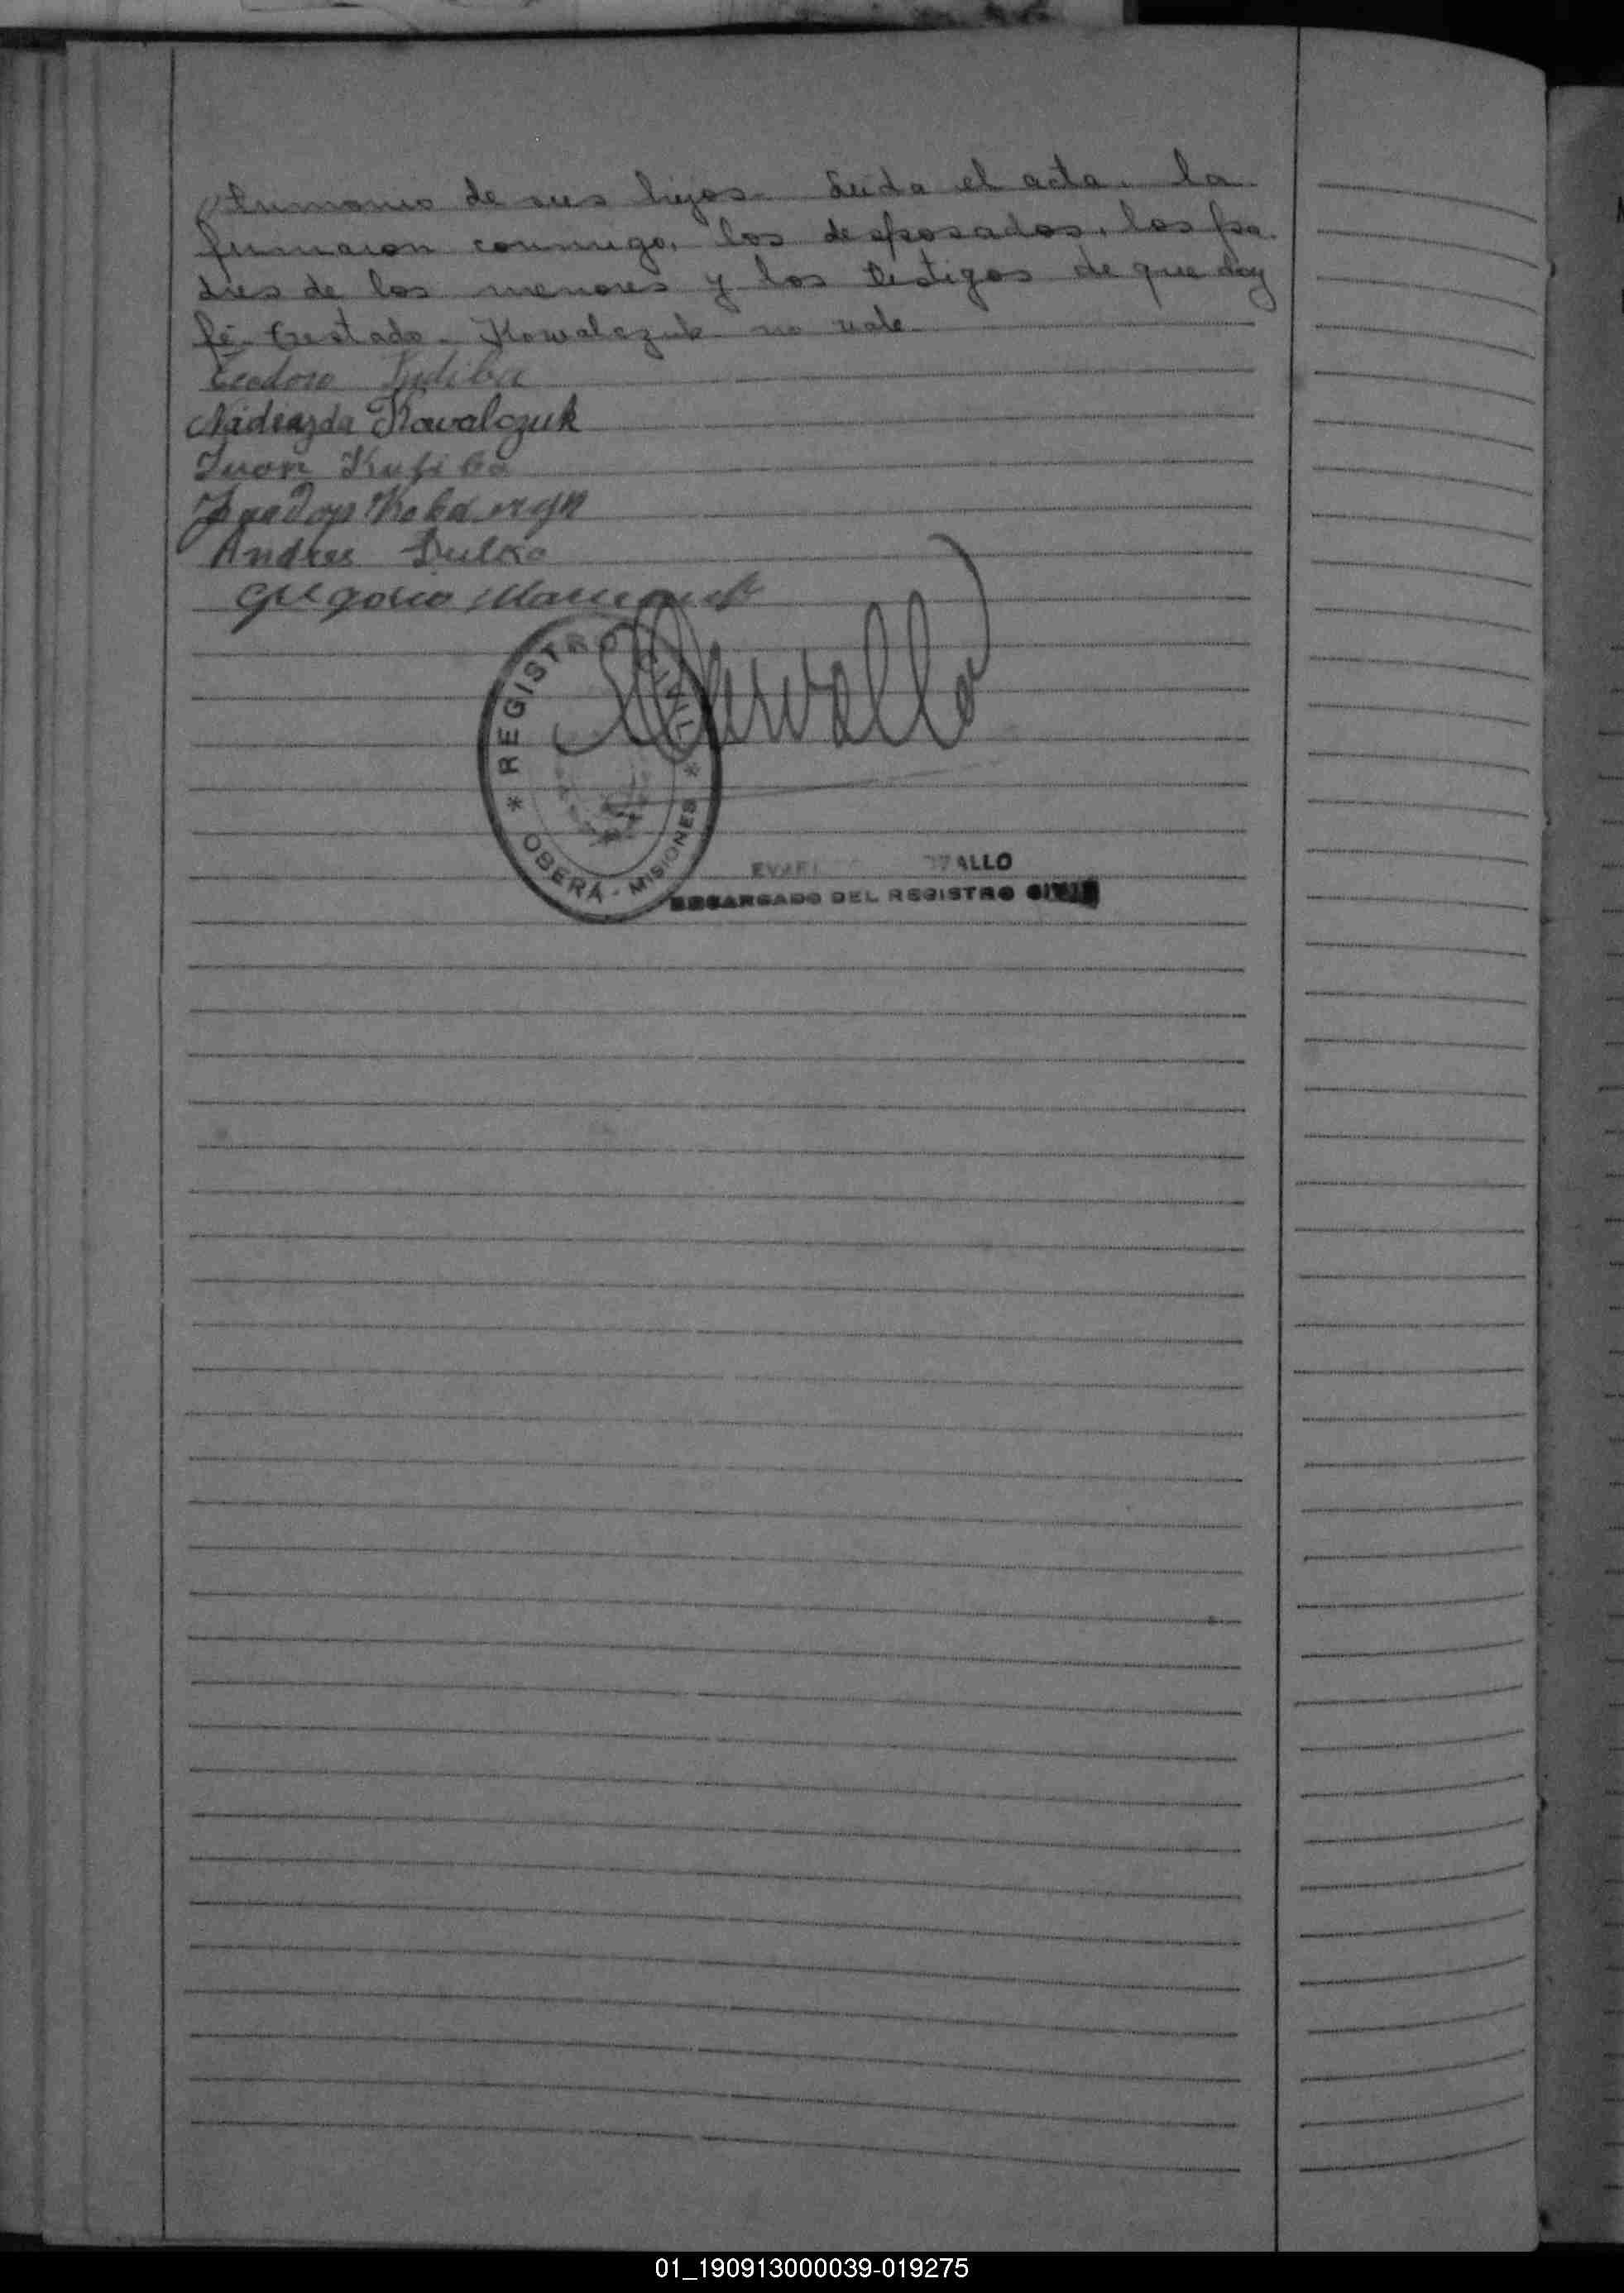 trimonio de sus hijos. Leida el acta, la
firmaron conmigo, los desposados, los pa-
dres de los menores y los testigos de que doy
fé. Testado. Kowalczuk no vale
Teodoro
Nadiezda Kowalczuk
Juan
Andres Dulko
Gregorio
REGISTRO CIVIL
* OBERÁ - MISIONES *
ENCARGADO DEL REGISTRO CIVIL
01_190913000039-019275